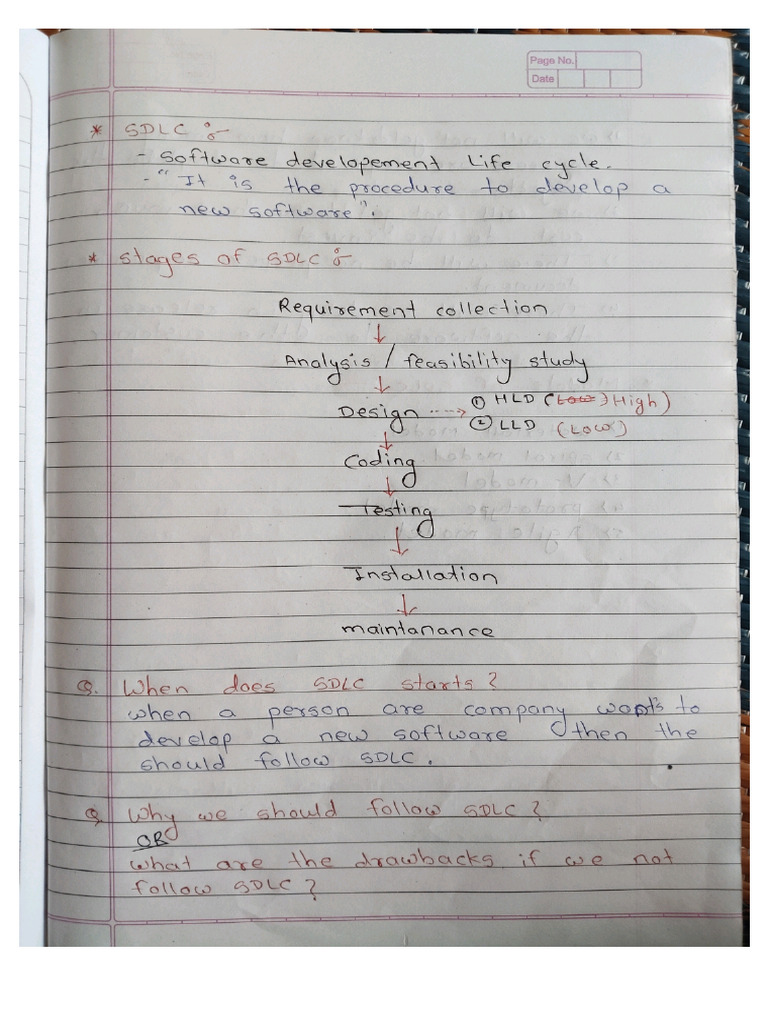 Page No.
Date
* SDLC :-
- Software developement Life cycle.
- "It is the procedure to develop a
new software".
* Stages of SDLC :-
Requirement collection
↓
Analysis / feasibility study
↓
Design ----> ① HLD (Low) High)
② LLD (Low)
↓
Coding
↓
Testing
↓
Installation
↓
maintanance
Q. When does SDLC starts?
when a person are company wants to
develop a new software then the
should follow SDLC.
Q. Why we should follow SDLC?
OR
What are the drawbacks if we not
follow SDLC?